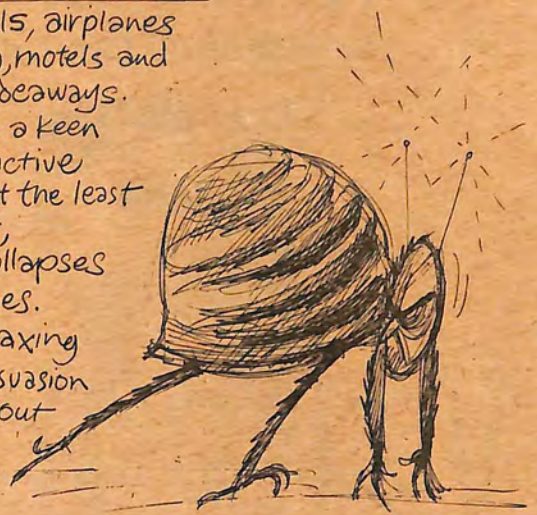 ls, airplanes
, motels and
deaways.
a keen
active
t the least
,
llapses
es.
axing
suasion
out